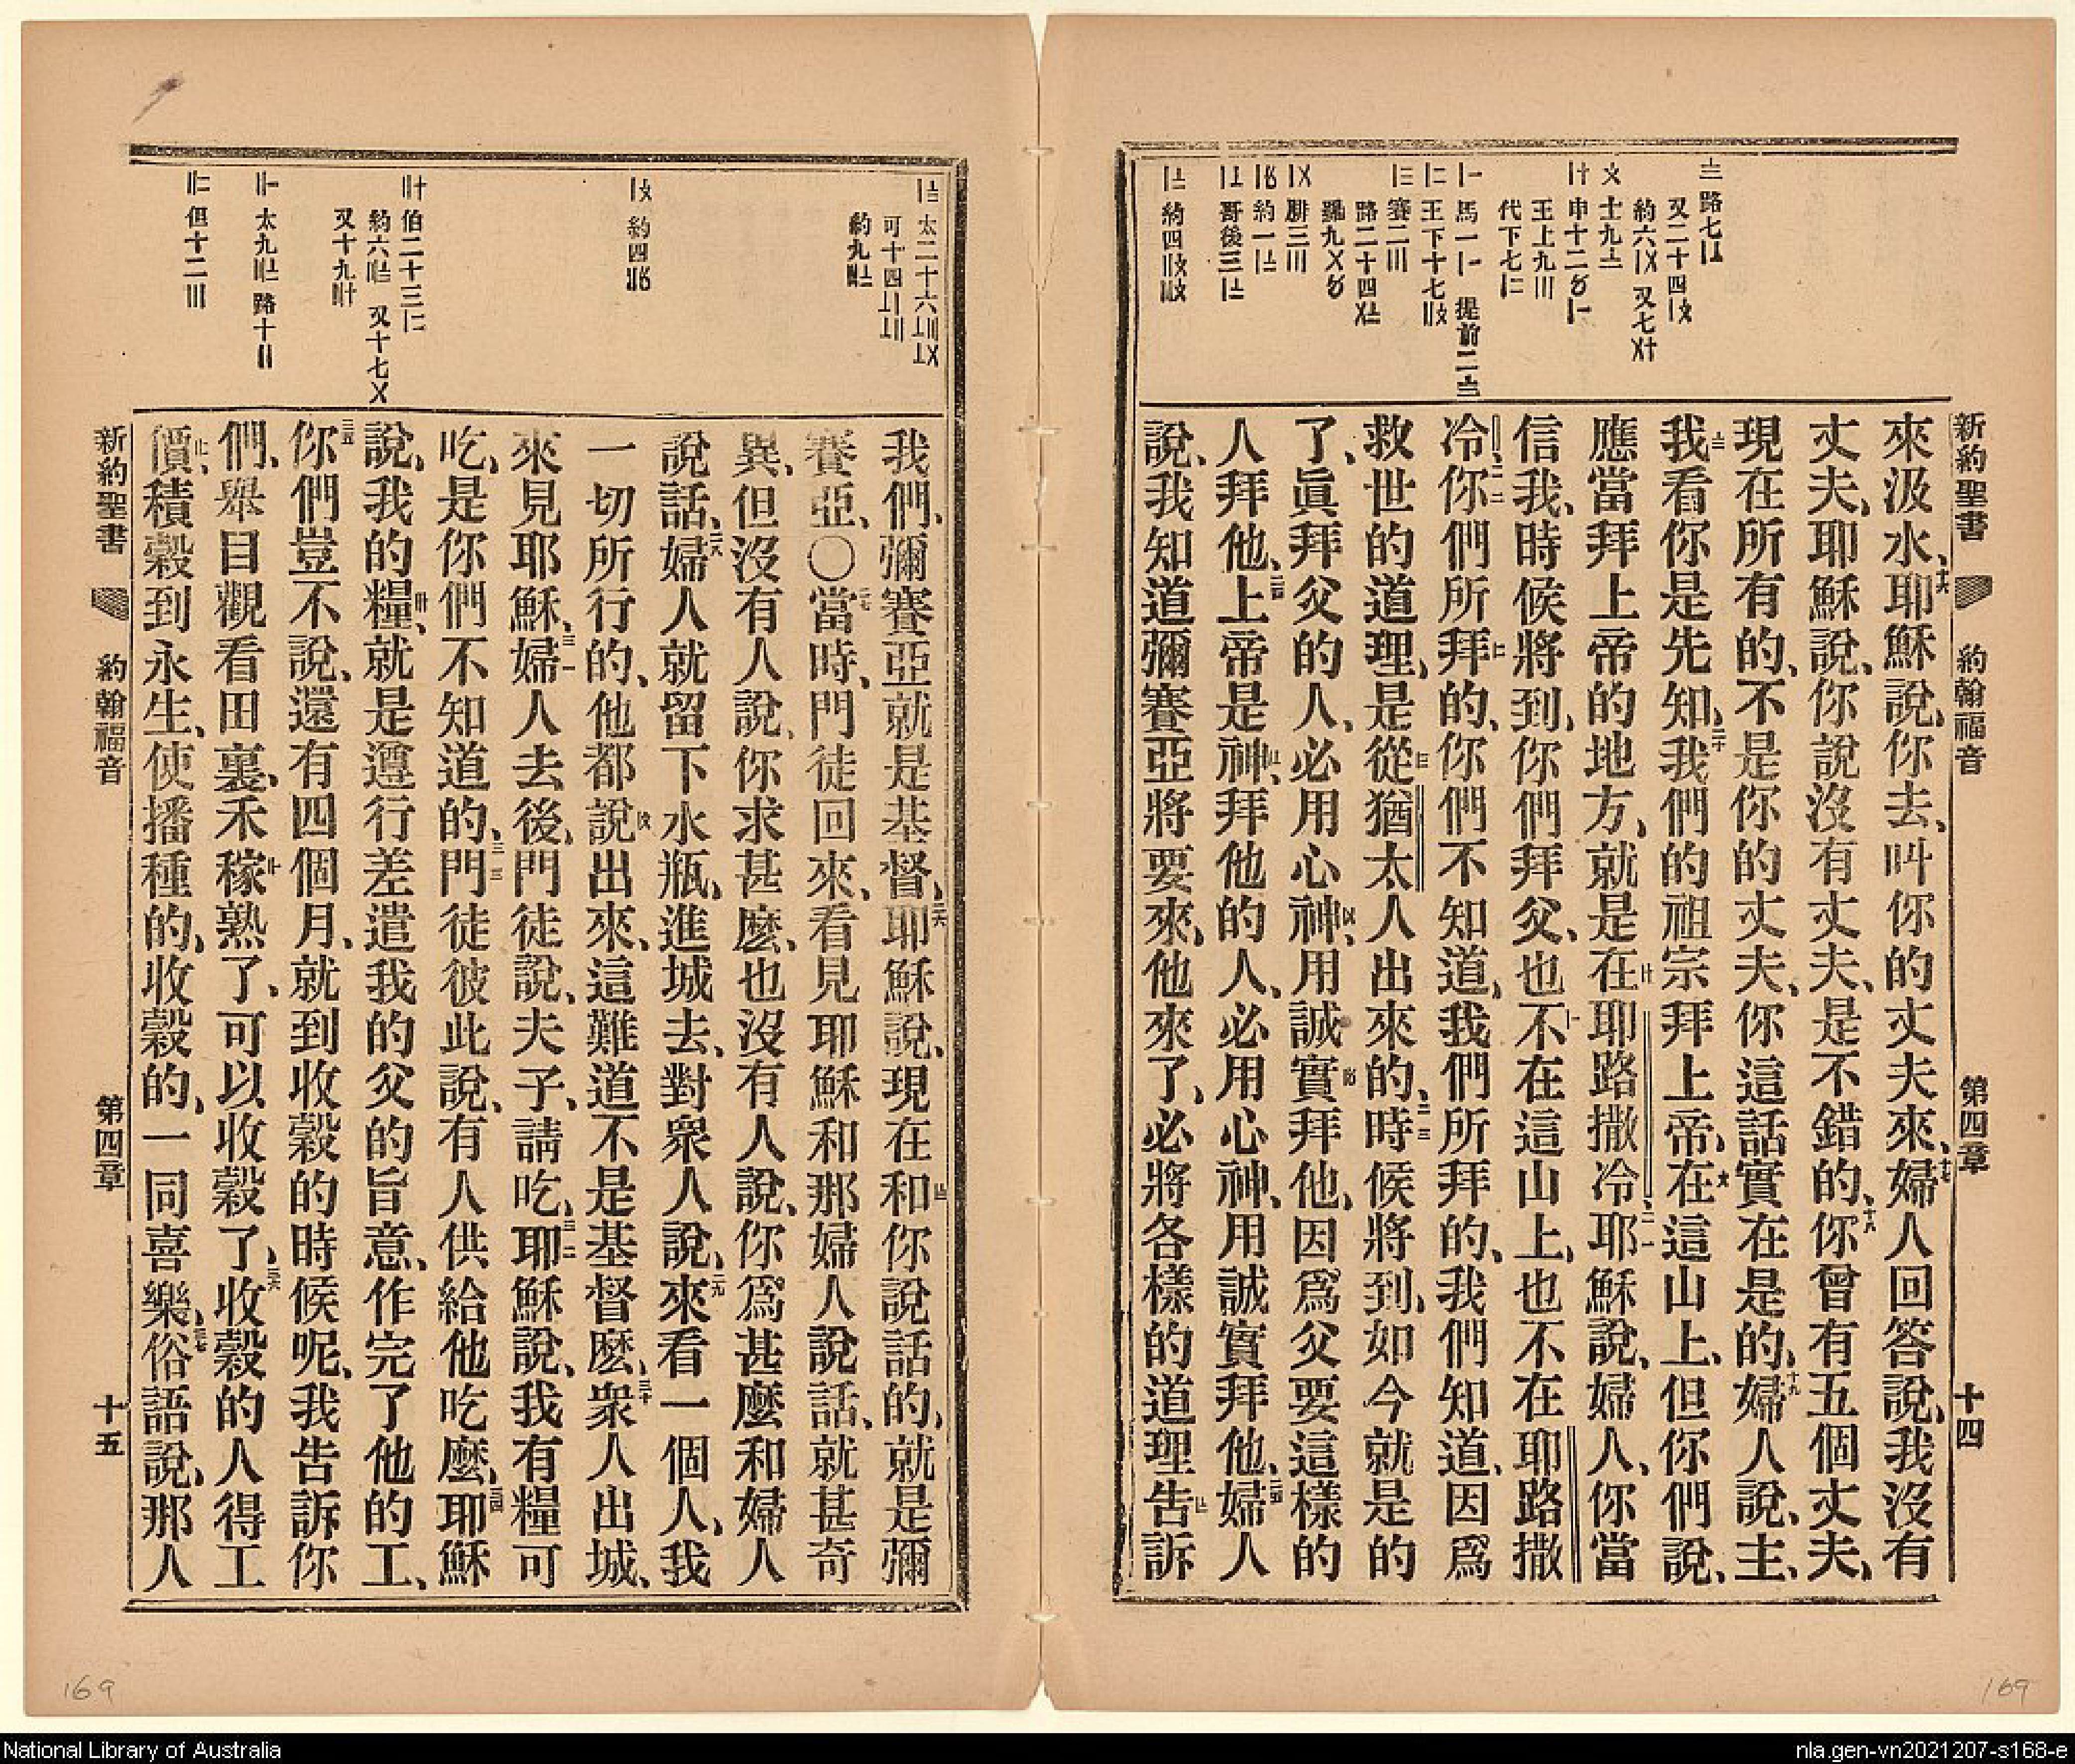 新約聖書 約翰福音 第四章 十四
來汲水、耶穌說、你去、叫你的丈夫來、婦人回答說、我沒有
丈夫、耶穌說、你說沒有丈夫、是不錯的、你曾有五個丈夫、
現在所有的、不是你的丈夫、你這話實在是的、婦人說、主、
我看你是先知、我們的祖宗拜上帝、在這山上、但你們說、
應當拜上帝的地方、就是在耶路撒冷、耶穌說、婦人、你當
信我、時候將到、你們拜父、也不在這山上、也不在耶路撒
冷、你們所拜的、你們不知道、我們所拜的、我們知道、因爲
救世的道理、是從猶太人出來的、時候將到、如今就是的
了、眞拜父的人、必用心神、用誠實拜他、因爲父要這樣的
人拜他、上帝是神、拜他的人、必用心神、用誠實拜他、婦人
說、我知道彌賽亞將要來、他來了、必將各樣的道理告訴
我們、彌賽亞就是基督、耶穌說、現在和你說話的、就是彌
賽亞、〇當時、門徒回來、看見耶穌和那婦人說話、就甚奇
異、但沒有人說、你求甚麽、也沒有人說、你爲甚麽和婦人
說話、婦人就留下水瓶、進城去、對衆人說、來看一個人、我
一切所行的、他都說出來、這難道不是基督麽、衆人出城、
來見耶穌、婦人去後、門徒說、夫子、請吃、耶穌說、我有糧可
吃、是你們不知道的、門徒彼此說、有人供給他吃麽、耶穌
說、我的糧、就是遵行差遣我的父的旨意、作完了他的工、
你們豈不說、還有四個月、就到收穀的時候呢、我告訴你
們、舉目觀看田裏、禾稼熟了、可以收穀了、收穀的人得工
價、積穀到永生、使播種的、收穀的、一同喜樂、俗語說、那人
新約聖書 約翰福音 第四章 十五
169
169
National Library of Australia
nla.gen-vn2021207-s168-e